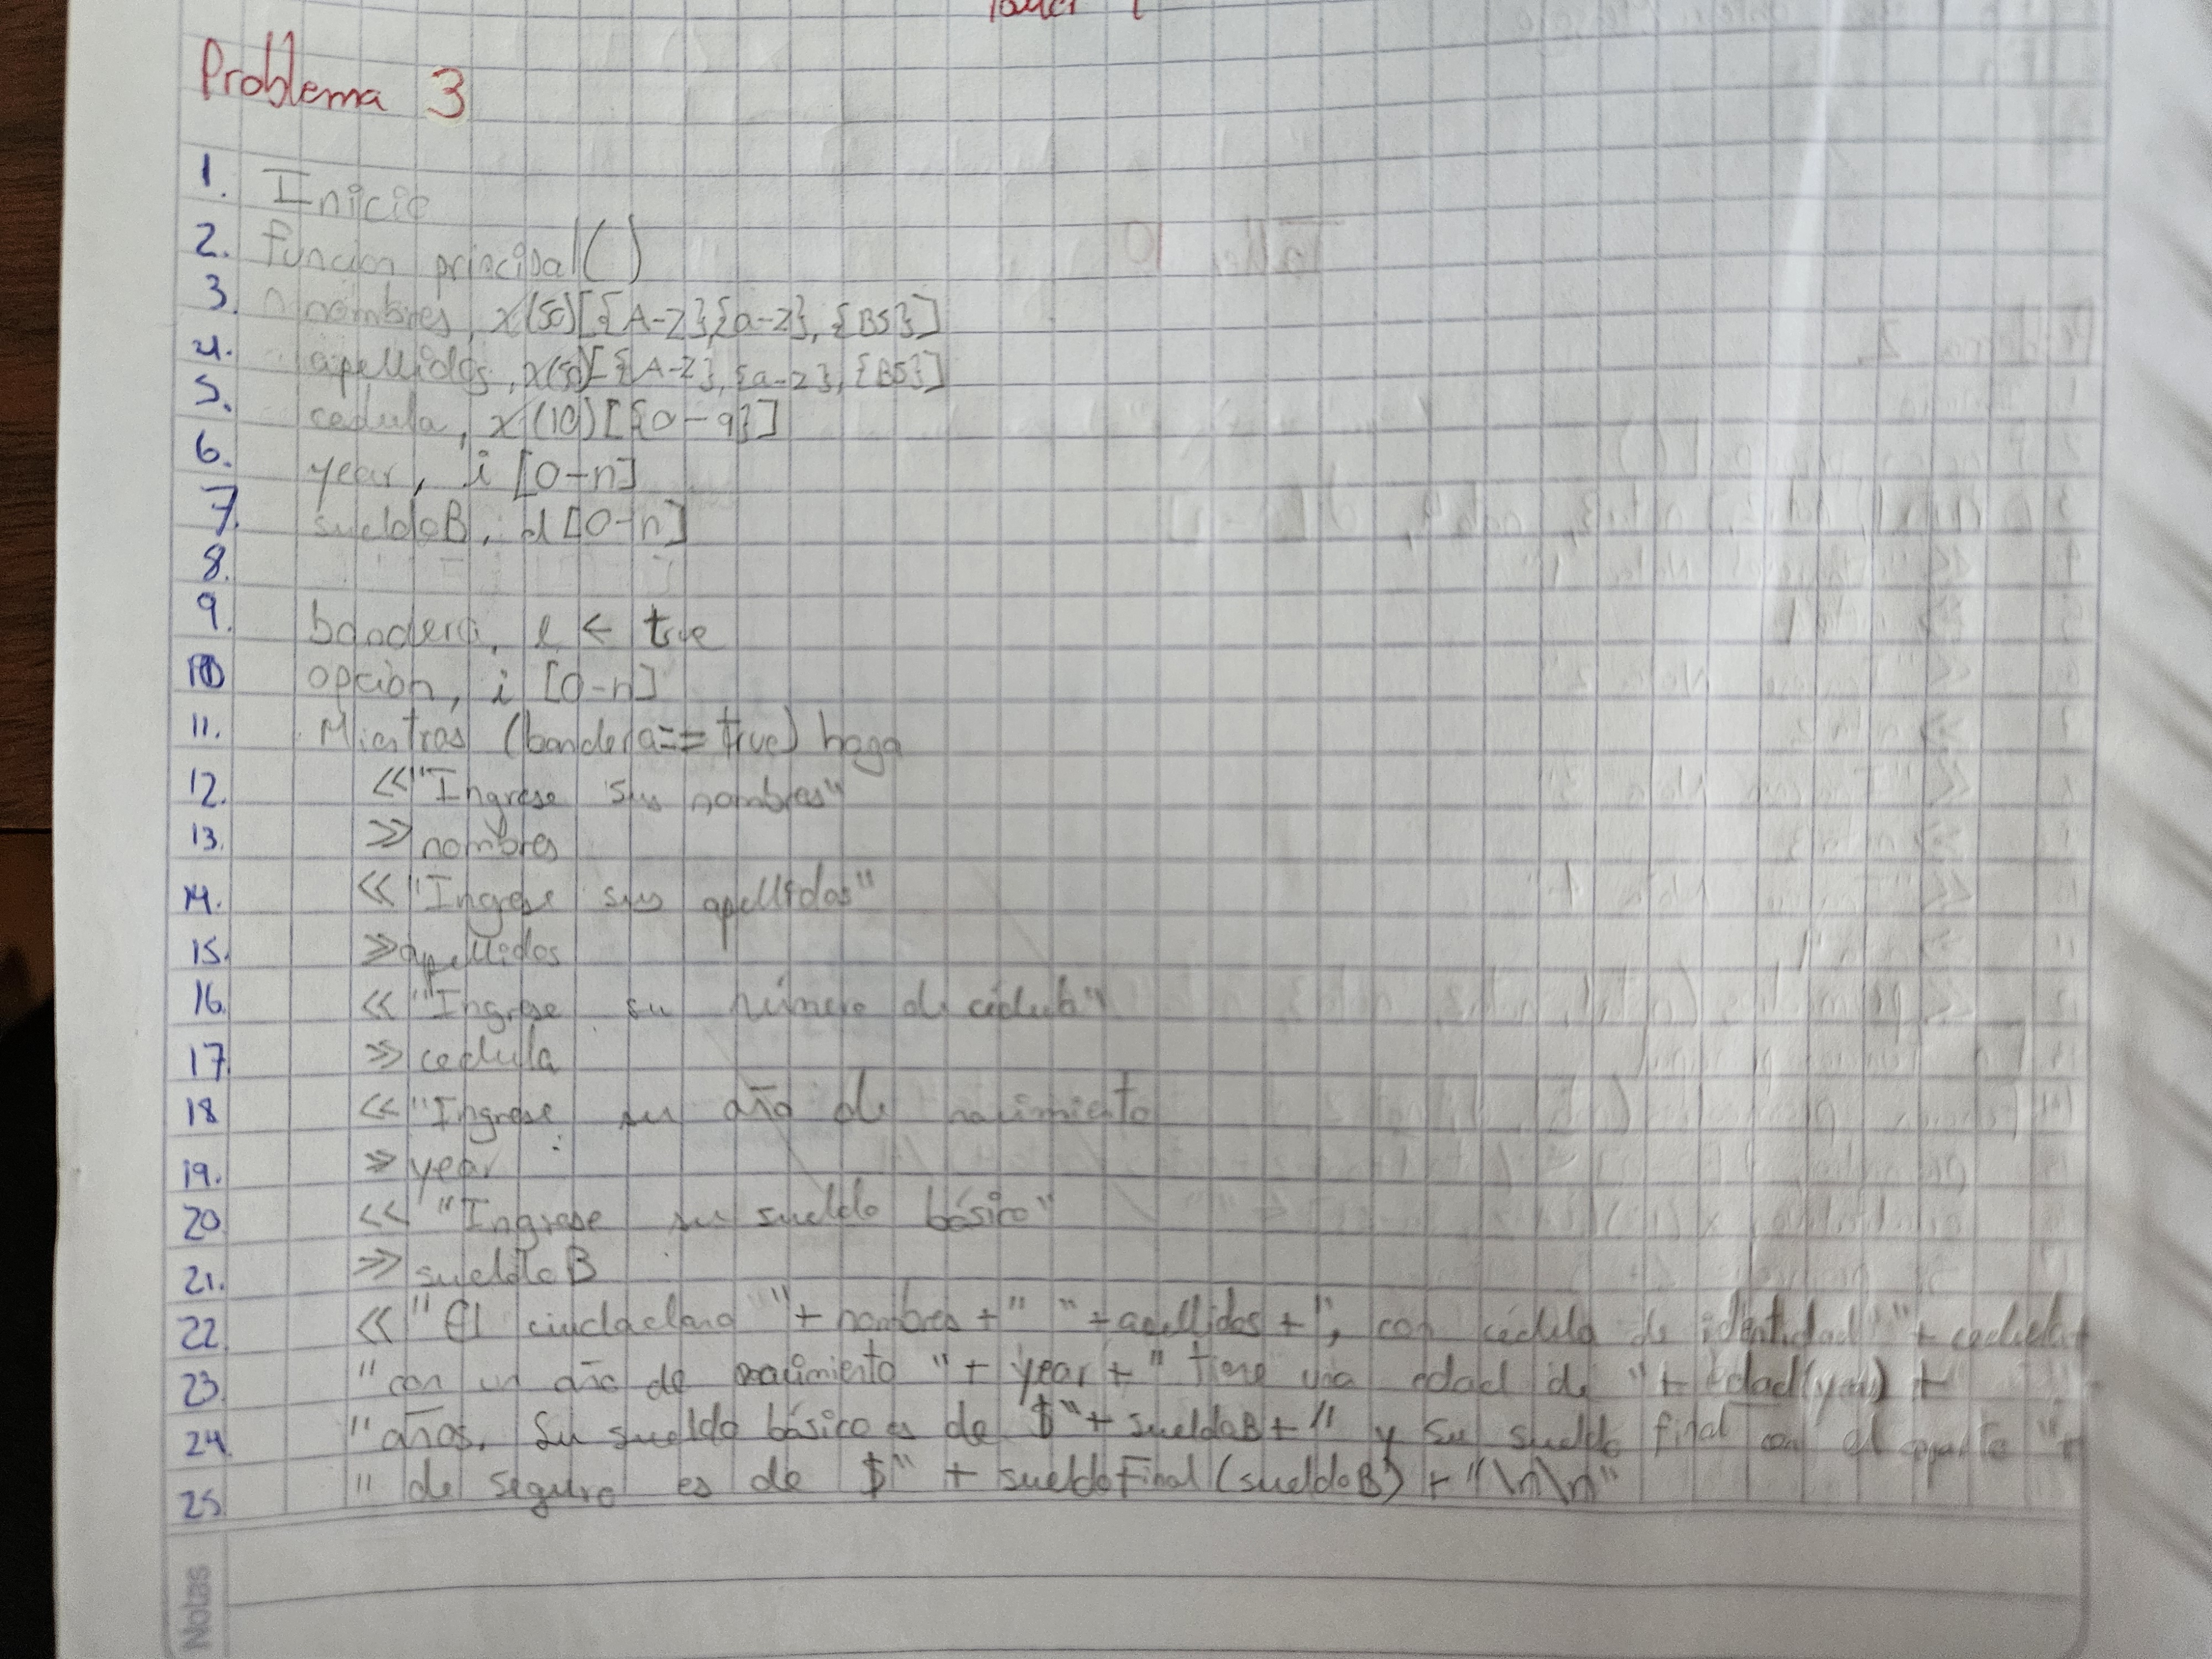 Problema 3
1. Inicio
2. funcion principal()
3. nombres, x(50)[{A-Z},{a-z},{BS}]
4. apellidos, x(50)[{A-Z},{a-z},{BS}]
5. cedula, x(10)[{0-9}]
6. year, i [0-n]
7. sueldoB, d [0-n]
8.
9. bandera, l ← true
10 opcion, i [0-n]
11. Mientras (bandera == true) haga
12. << "Ingrese sus nombres"
13. >> nombres
14. << "Ingrese sus apellidos"
15. >> apellidos
16. << "Ingrese su número de cédula"
17. >> cedula
18 << "Ingrese su año de nacimiento
19. >> year
20. << "Ingrese su sueldo básico"
21. >> sueldoB
22. << "El ciudadano "+ nombres +" "+apellidos +", con cédula de identidad "+ cedula+
23. "con un año de nacimiento "+ year + " tiene una edad de "+ edad(year) +
24. "años. Su sueldo básico es de $"+ sueldoB + " y su sueldo final con el aporte "+
25. " de seguro es de $" + sueldoFinal(sueldoB) + "\n\n"
Notas